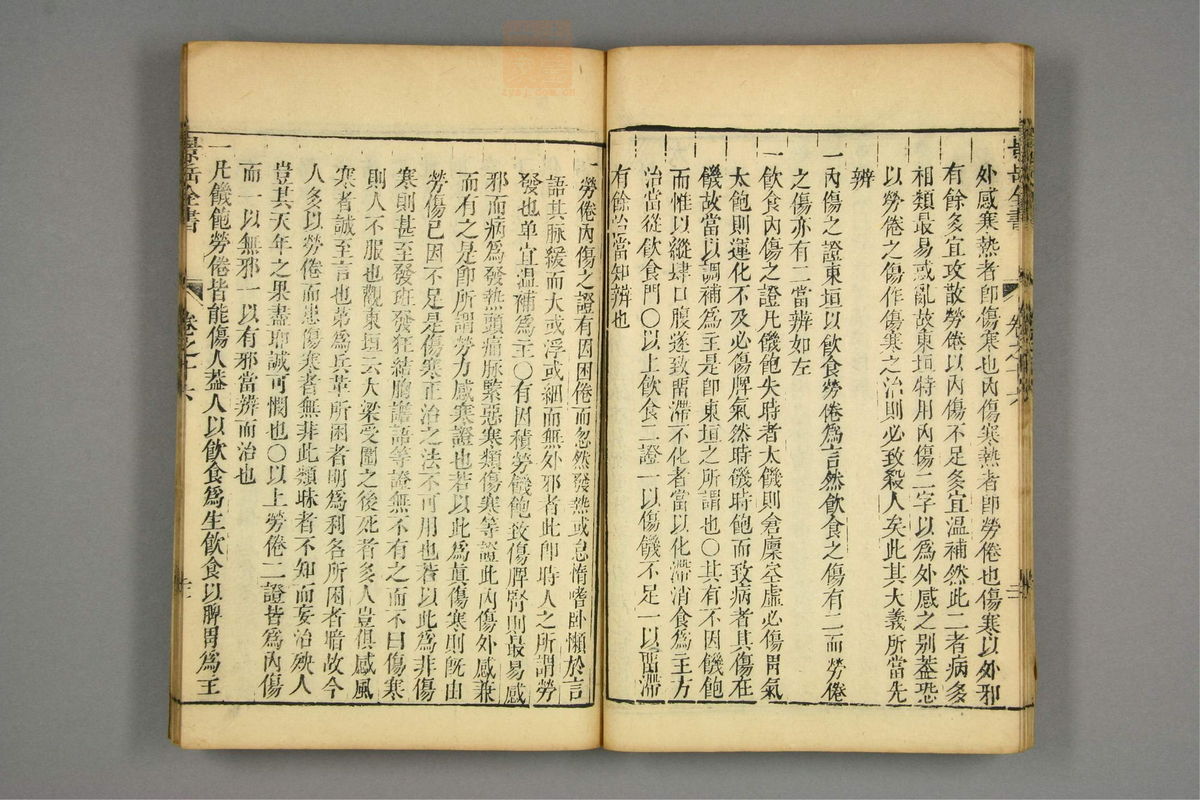 景岳全書
卷之十六
外感寒熱者卽傷寒也內傷寒熱者卽勞倦也傷寒以外邪
有餘多宜攻散勞倦以內傷不足多宜温補然此二者病多
相類最易惑亂故東垣特用內傷二字以爲外感之别葢恐
以勞倦之傷作傷寒之治則必致殺人矣此其大義所當先
辨
一內傷之證東垣以飲食勞倦爲言然飲食之傷有二而勞倦
之傷亦有二當辨如左
一飲食內傷之證凡饑飽失時者太饑則倉廩空虛必傷胃氣
太飽則運化不及必傷脾氣然時饑時飽而致病者其傷在
饑故當以調補爲主是卽東垣之所謂也〇其有不因饑飽
而惟以縱肆口腹遂致畱滯不化者當以化滯消食爲主方
治當從飲食門〇以上飲食二證一以傷饑不足一以畱滯
有餘治當知辨也
一勞倦內傷之證有因困倦而忽然發熱或怠惰嗜卧懶於言
語其脉緩而大或浮或細而無外邪者此卽時人之所謂勞
發也单宜温補爲主〇有因積勞饑飽致傷脾腎則最易感
邪而病爲發熱頭痛脉緊惡寒類傷寒等證此內傷外感兼
而有之是卽所謂勞力感寒證也若以此爲眞傷寒則旣由
勞傷已因不足是傷寒正治之法不可用也若以此爲非傷
寒則甚至發班發狂結胸譫語等證無不有之而不曰傷寒
則人不服也觀東垣云大梁受圍之後死者多人豈俱感風
寒者誠至言也第爲兵革所困者明爲利名所困者暗故今
人多以勞倦而患傷寒者無非此類昧者不知而妄治殃人
豈其天年之果盡耶誠可憫也〇以上勞倦二證皆爲內傷
而一以無邪一以有邪當辨而治也
一凡饑飽勞倦皆能傷人葢人以飲食爲生飲食以脾胃爲主
景岳全書
卷之十六